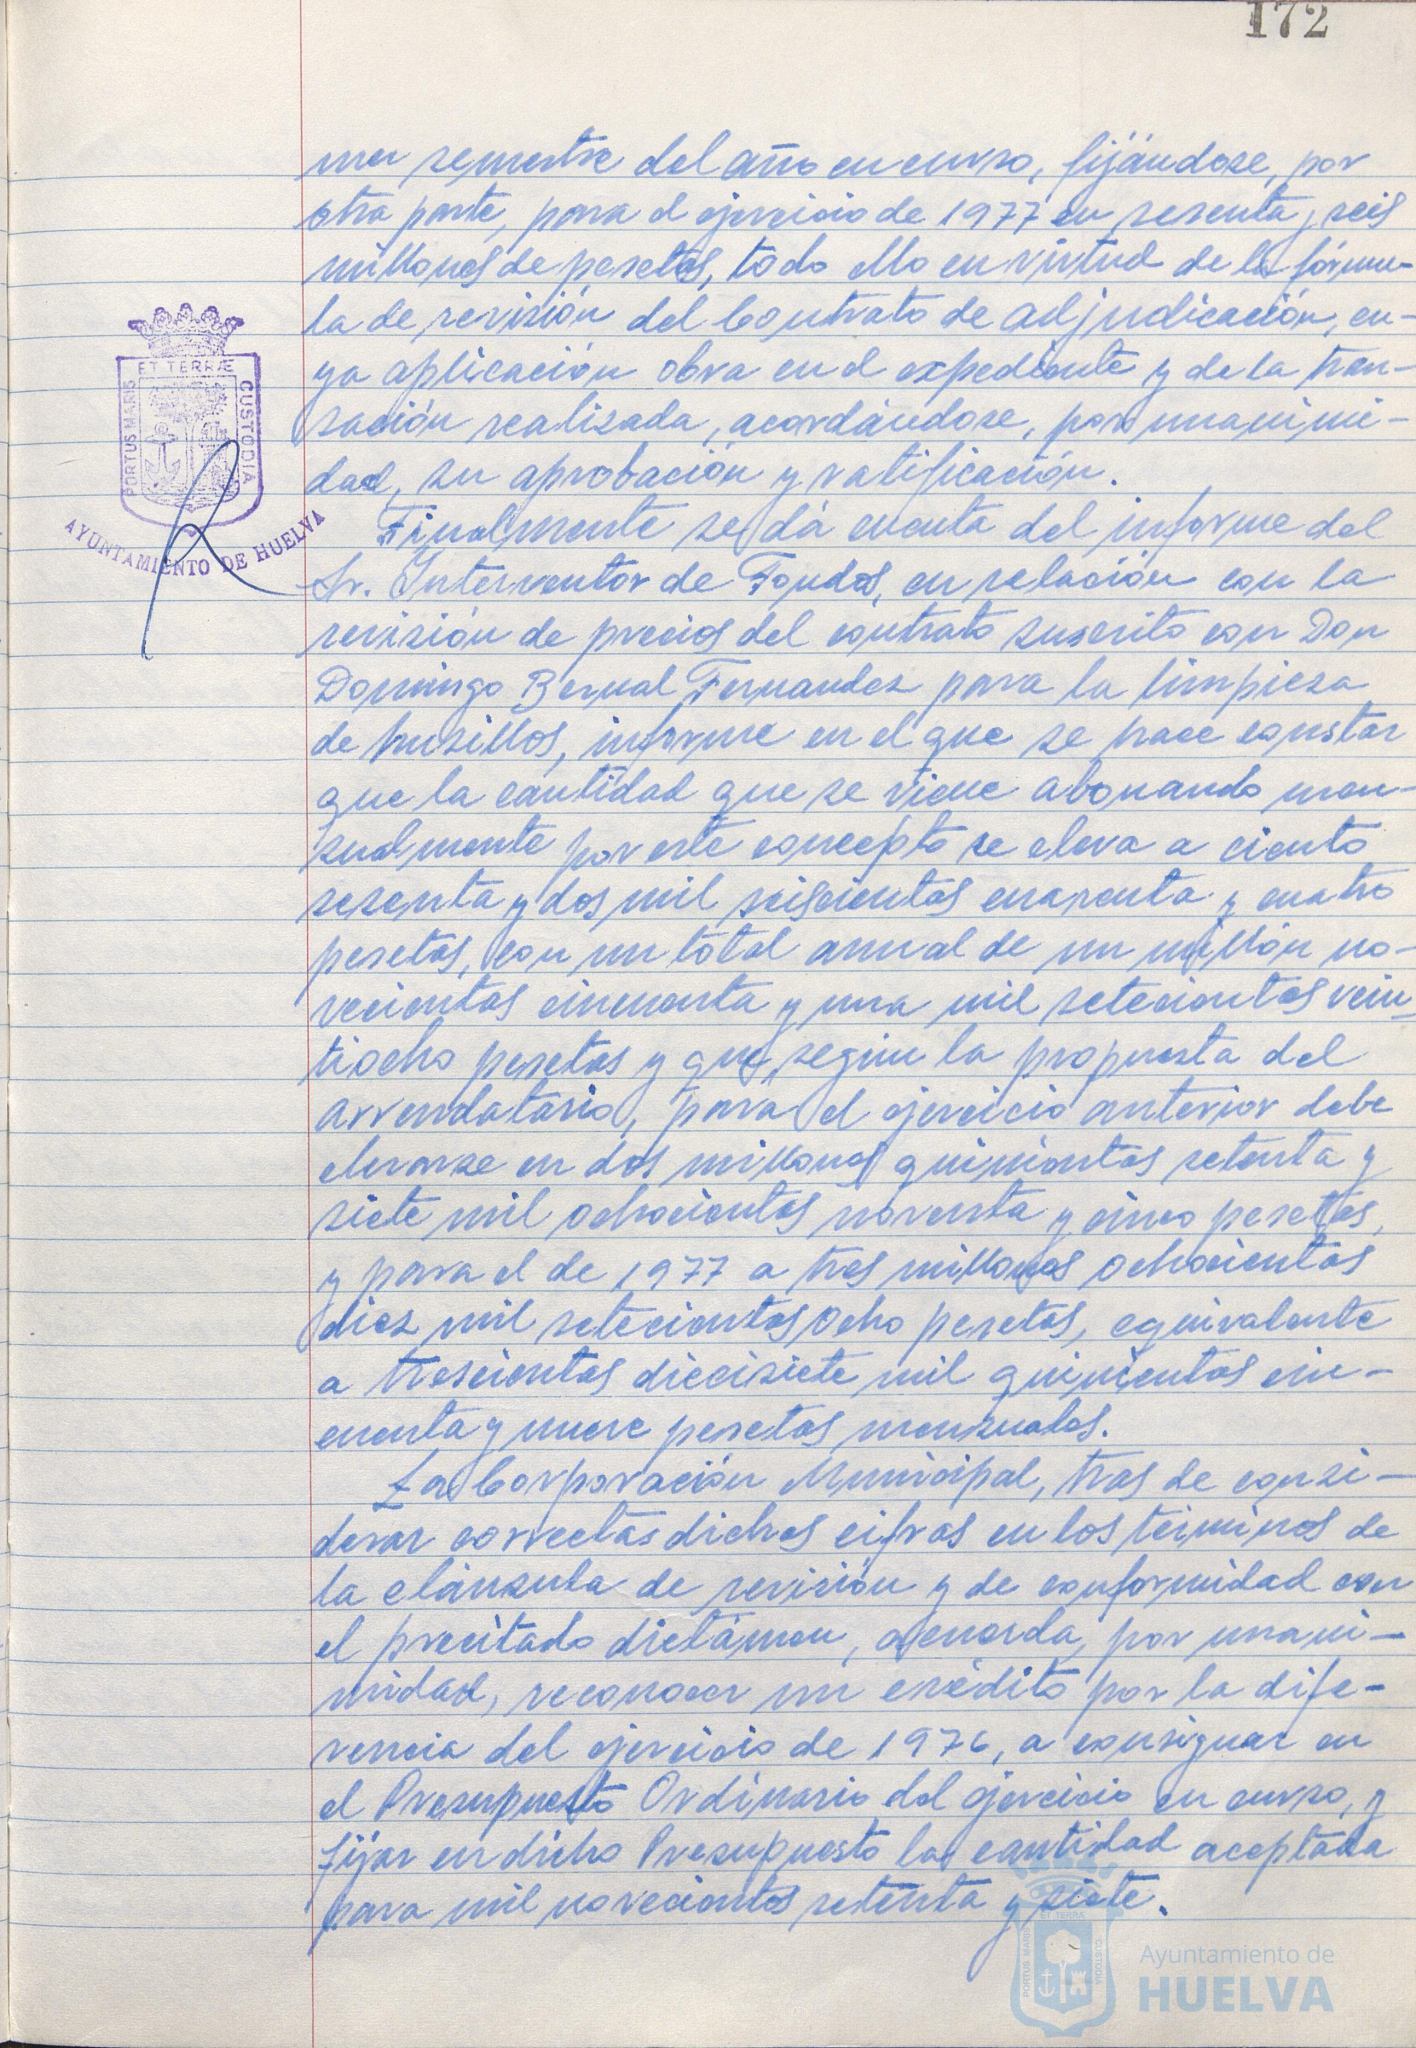 172
mer semestre del año en curso, fijándose, por
otra parte, para el ejercicio de 1977 en sesenta y seis
millones de pesetas, todo ello en virtud de la fórmu-
la de revisión del Contrato de adjudicación, cu-
ya aplicación obra en el expediente y de la tran-
sación realizada, acordándose, por unanimi-
dad, su aprobación y ratificación.
Finalmente se dá cuenta del informe del
Sr. Interventor de Fondos, en relación con la
revisión de precios del contrato suscrito con Don
Domingo Bernal Fernandez para la limpieza
de husillos, informe en el que se hace constar
que la cantidad que se viene abonando men-
sualmente por este concepto se eleva a ciento
sesenta y dos mil seiscientas cuarenta y cuatro
pesetas, con un total anual de un millón no-
vecientas cincuenta y una mil setecientas vein-
tiocho pesetas y que, según la propuesta del
arrendatario, para el ejercicio anterior debe
elevarse en dos millones quinientas setenta y
siete mil ochocientas noventa y cinco pesetas,
y para el de 1977 a tres millones ochocientas
diez mil setecientas ocho pesetas, equivalente
a trescientas diecisiete mil quinientas cin-
cuenta y nueve pesetas mensuales.
La Corporación Municipal, tras de consi-
derar correctas dichas cifras en los términos de
la cláusula de revisión y de conformidad con
el precitado dictámen, acuerda, por unani-
midad, reconocer un crédito por la dife-
rencia del ejercicio de 1976, a consignar en
el Presupuesto Ordinario del ejercicio en curso, y
fijar en dicho Presupuesto la cantidad aceptada
para mil novecientos setenta y siete.
PORTUS MARIS ET TERRÆ CUSTODIA
AYUNTAMIENTO DE HUELVA
PORTUS MARIS ET TERRÆ CUSTODIA
Ayuntamiento de
HUELVA